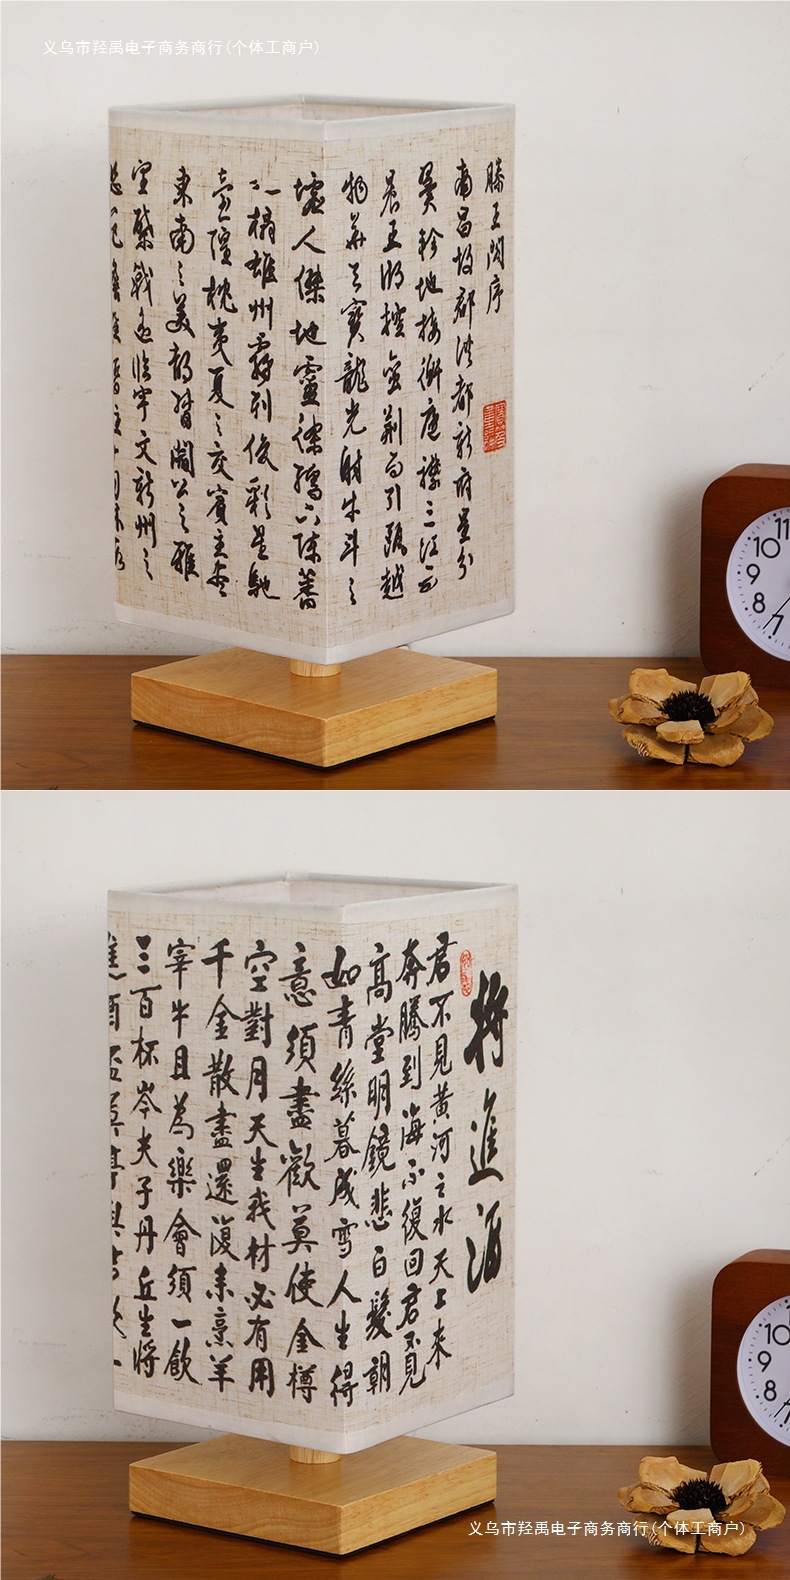 义乌市羟禹电子商务商行(个体工商户)
滕王閣序
南昌故郡洪都新府星分
翼軫地接衡廬襟三江而
帶五湖控蠻荊而引甌越
物華天寶龍光射牛斗之
墟人傑地靈徐孺下陳蕃
之榻雄州霧列俊彩星馳
臺隍枕夷夏之交賓主盡
東南之美都督閻公之雅
望棨戟遙臨宇文新州之
10
11
9
8
7
將進酒
君不見黃河之水天上來
奔騰到海不復回君不見
高堂明鏡悲白髮朝
如青絲暮成雪人生得
意須盡歡莫使金樽
空對月天生我材必有用
千金散盡還復來烹羊
宰牛且為樂會須一飲
三百杯岑夫子丹丘生將
10
9
8
7
义乌市羟禹电子商务商行(个体工商户)